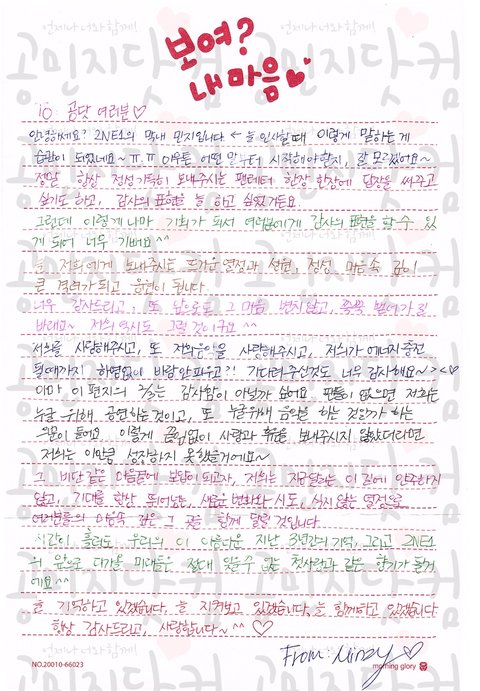 언제나 너와 함께!
공민지닷컴
보여?
내 마음
TO. 공닷 여러분♡
안녕하세요? 2NE1의 막내 민지입니다 ← 늘 인사할 때 이렇게 말하는 게
습관이 되었네요~ ㅠ.ㅠ 아무튼 어떤 말부터 시작해야할지, 잘 모르겠어요~
정말 항상 정성 가득히 보내주시는 팬레터 한장 한장에 답장을 써주고
싶기도 하고, 감사의 표현을 늘 하고 싶었거든요.
그런데 이렇게나마 기회가 되서 여러분에게 감사의 표현을 할 수 있
게 되어 너무 기뻐요^^
늘 저희에게 보내주시는 뜨거운 열정과 선물, 정성 마음속 깊이
큰 격려가 되고 응원이 됩니다.
너무 감사드리고, 또 앞으로도 그 마음 변치않고, 쭉쭉 뻗어가길
바래요~ 저희 역시도 그럴 것이구요^^
저희를 사랑해주시고, 또 저희 음악을 사랑해주시고, 저희가 에너지 충전
될 때까지 하염없이 바람맞파주고?! 기다려주신것도 너무 감사해요~><♡
아마 이 편지의 3/2는 감사함이 아닐까 싶어요. 팬들이 없으면 저희는
누굴 위해 공연하는 것이고, 또 누굴위해 음악을 하는 것일까 하는
의문이 들어요. 이렇게 끊임없이 사랑과 힘을 보내주시지 않았더라면
저희는 이만큼 성장하지 못했을거에요~
그 비단 같은 마음들에 보답이 되고자, 저희는 지금있는 이 길에 안주하지
않고, 기대를 항상 뛰어넘는, 새로운 변화와 시도, 식지 않는 열정으로
여러분들의 마음속 깊은 그 곳을 함께 달릴 것입니다.
시간이 흘러도 우리의 이 아름다운 지난 3년간의 기억, 그리고 2NE1
의 앞으로 다가올 미래들은 절대 잊을수 없는 첫사랑과 같은 향기가 날거
에요^^
늘 기억하고 있겠습니다. 늘 지켜보고 있겠습니다. 늘 함께하고 있겠습니다
항상 감사드리고, 사랑합니다~ ^^ ♡
From. Minzy♡
NO.20010-66023
morning glory